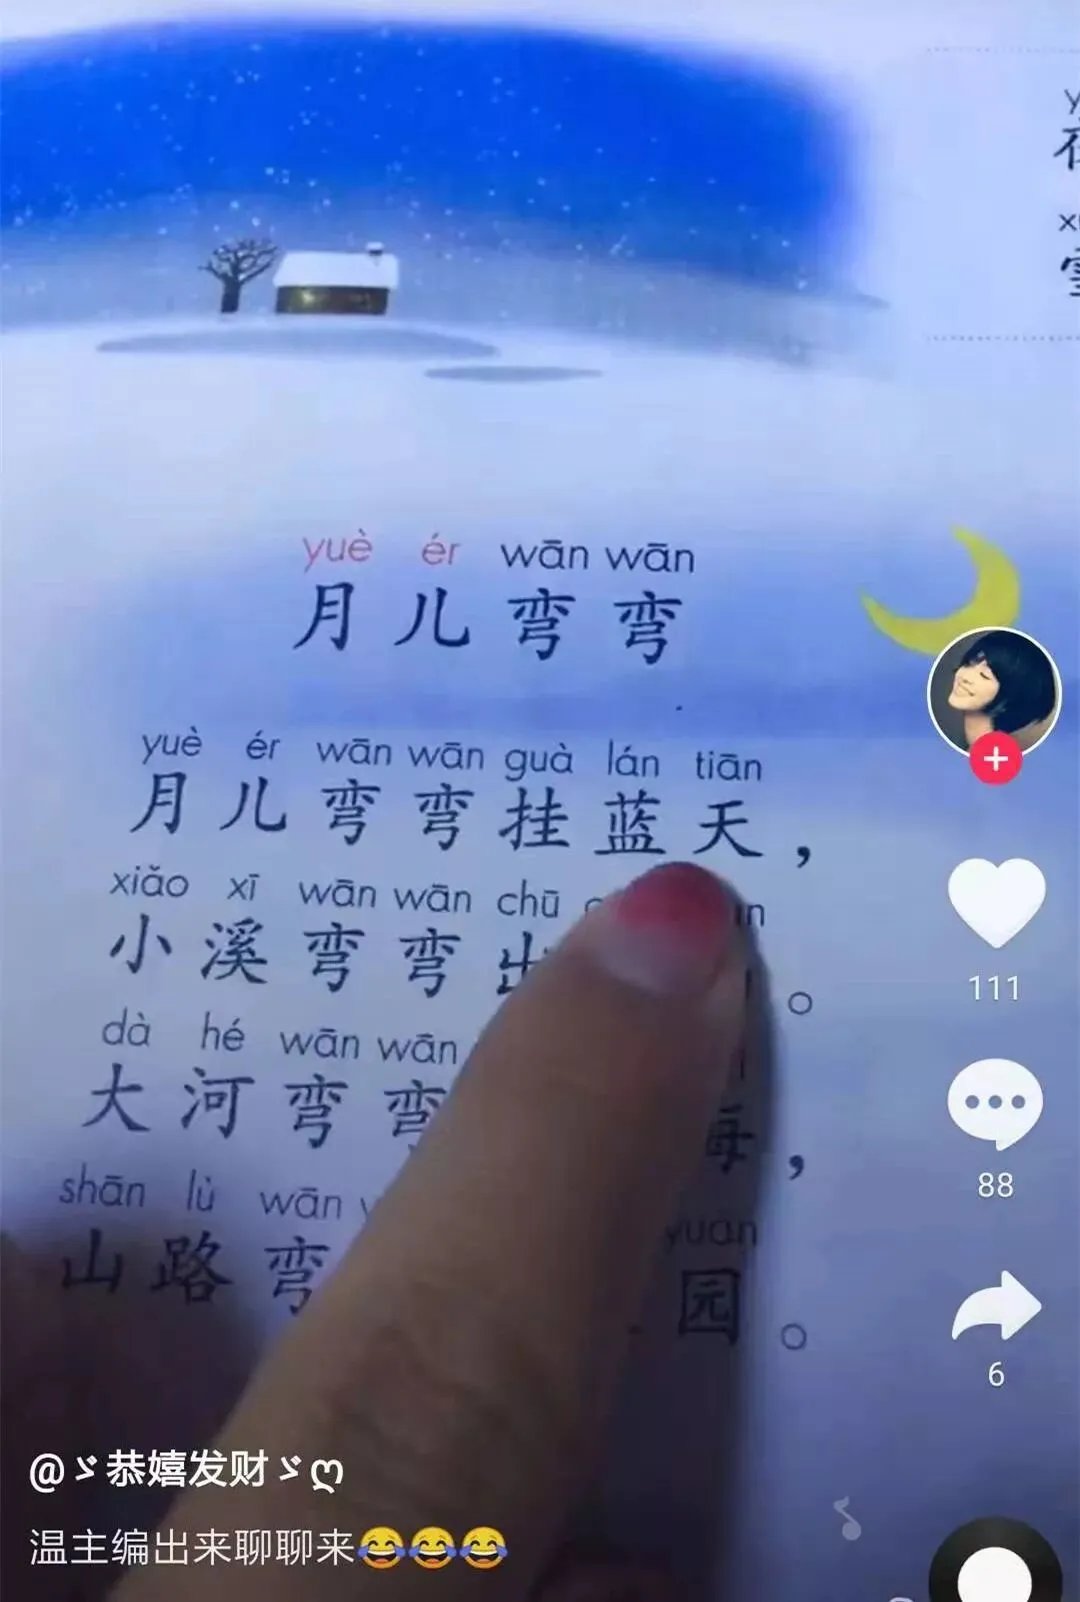 yuè ér wān wān
月儿弯弯
yuè ér wān wān guà lán tiān
月儿弯弯挂蓝天，
xiǎo xī wān wān chū
小溪弯弯出 。
dà hé wān wān
大河弯弯 海，
shān lù wān yuán
山路弯 园。
111
88
6
@ゞ恭嬉发财ゞღ
温主编出来聊聊来😂😂😂